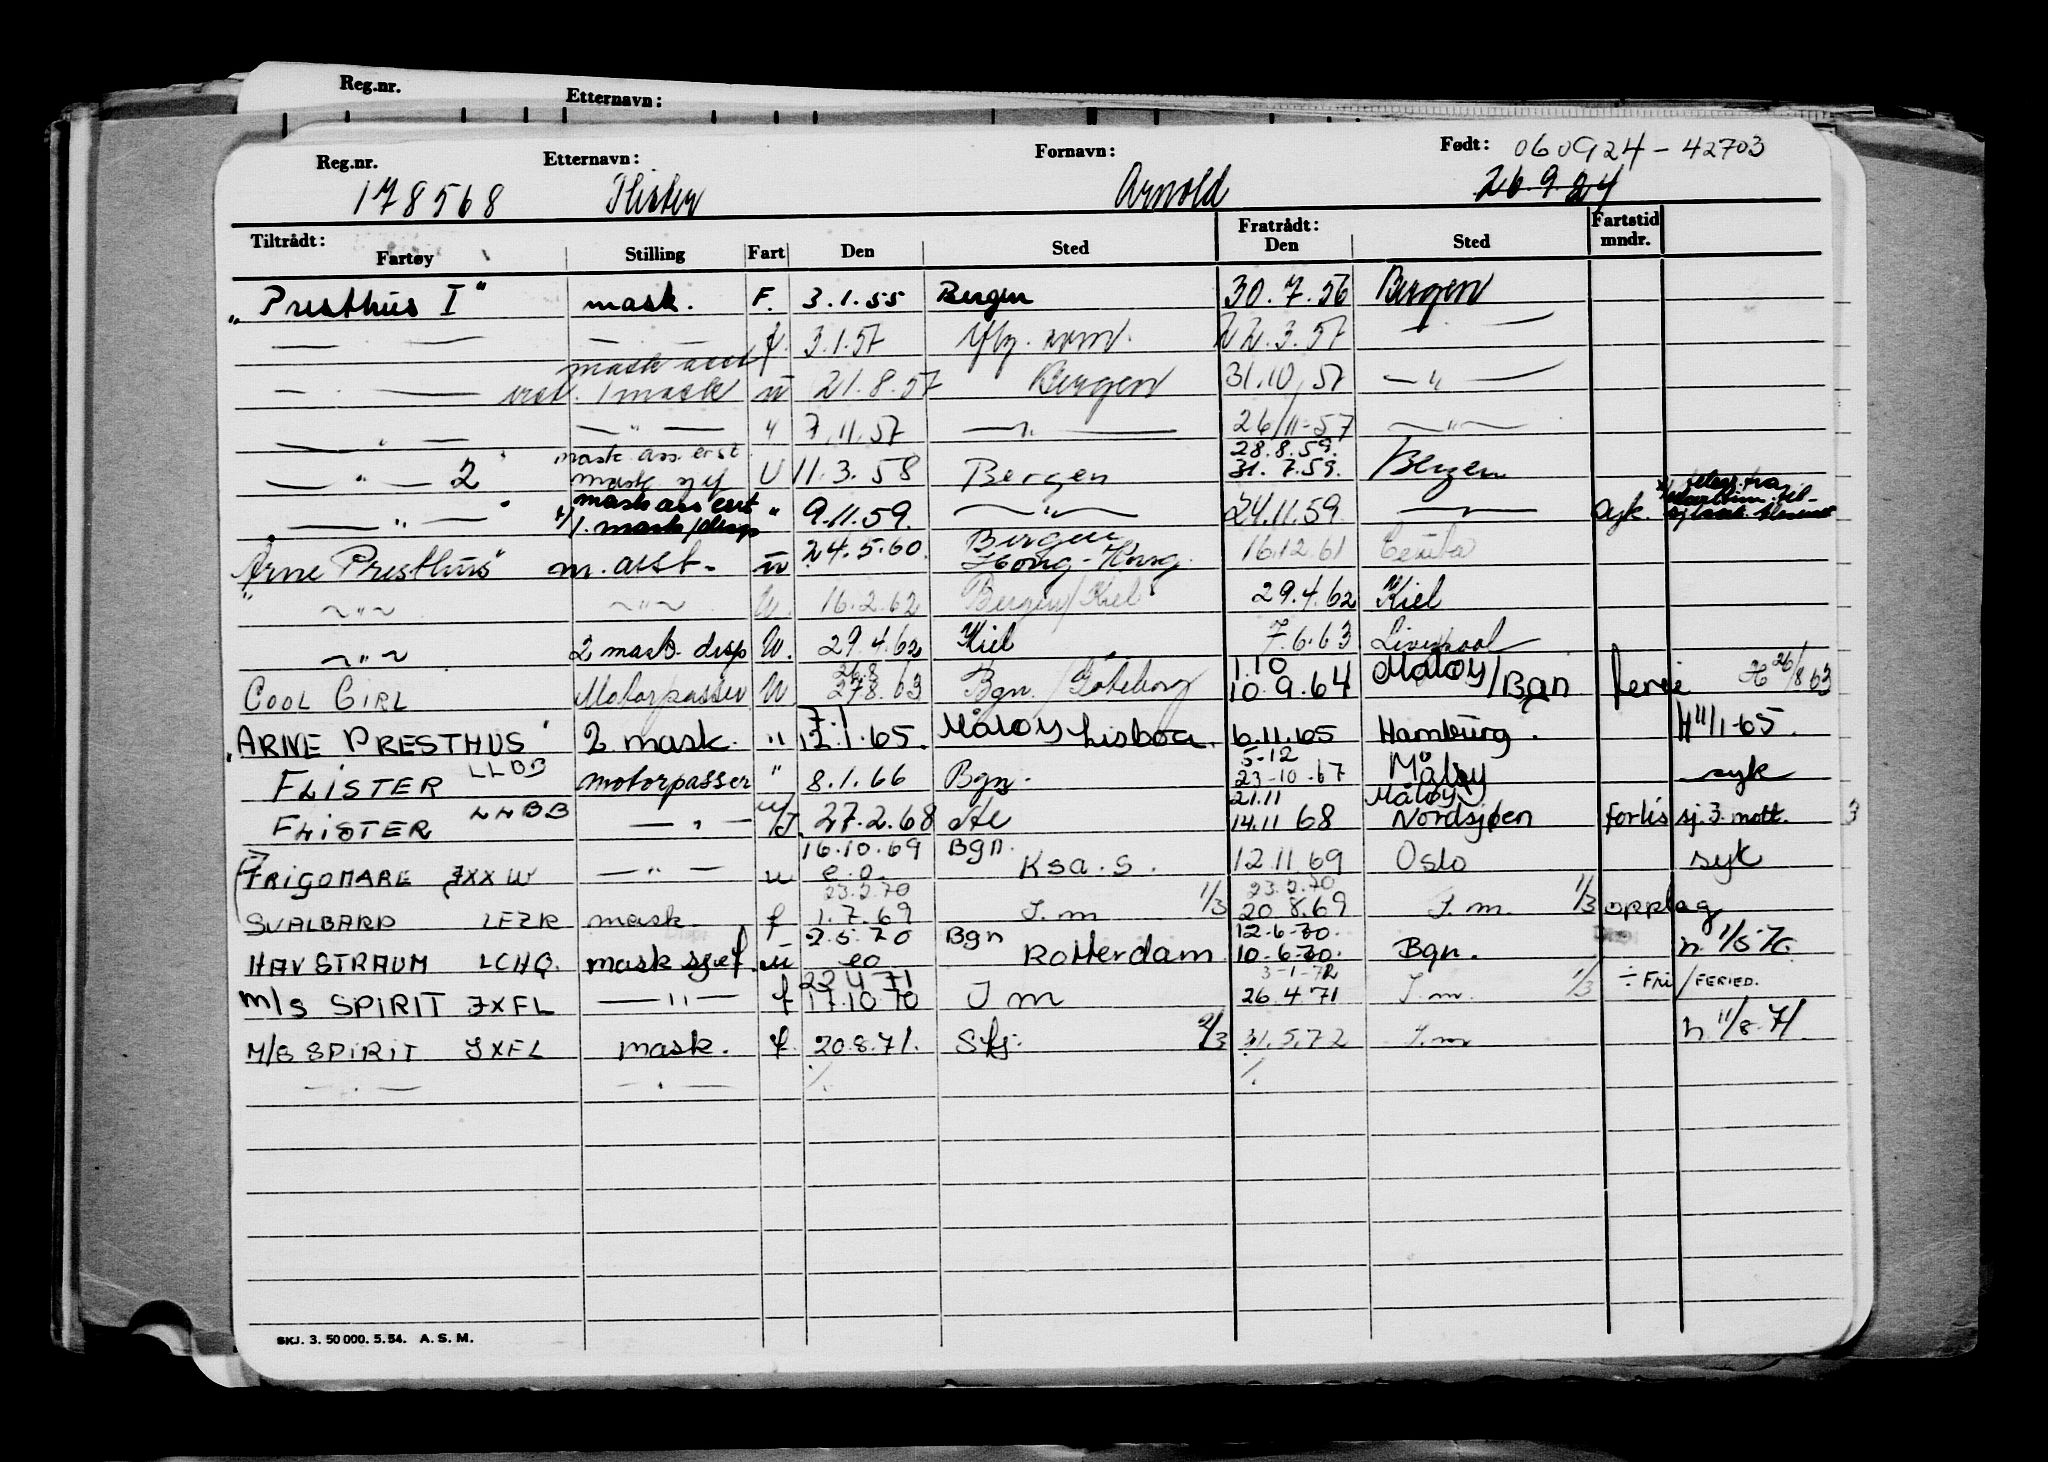 Reg.nr. Etternavn:
Reg.nr. Etternavn: Fornavn: Født: 060924-42703
178568 Flister Arnold 26.9.24
Tiltrådt: Fratrådt: Fartstid
Fartøy Stilling Fart Den Sted Den Sted mndr.
"Presthus I" mask. F. 3.1.55 Bergen 30.7.56 Bergen
— — — . — f. 3.1.57 22.3.57 — . —
mask asst
— . — 1 mask ü 21.8.57 Bergen 31.10.57 — " —
— " — — " — " 7.11.57 — " — 26/11-57 — " —
mask. ass. erst. 28.8.59.
— " — 2" mask U 11.3.58 Bergen 31.7.59. Bergen
mask ass erst
— " — " 1. mask/disp " 9.11.59. — " — 24.11.59 — syk.
Bergen
"Arne Presthus" m. asst. ü 24.5.60. Hong-Kong. 16.12.61 Ceuta
— " — — " — U. 16.2.62 Bergen/Kiel 29.4.62 Kiel
— " — 2 mask. disp U. 29.4.62 Kiel 7.6.63 Liverpool
26.8 1.10
COOL GIRL Motorpasser U 27.8.63 Bgn./Göteborg 10.9.64 Måløy/Bgn ferie H 26/8 63
7.1
"ARNE PRESTHUS" 2 mask. " 12.1.65. Måløy Lisboa. 6.11.65 Hamburg. H 11/1-65.
5-12
FLISTER LLBB motorpasser " 8.1.66 Bgn. 23-10-67 Måløy syk
21.11 Måløy
FLISTER LLBB — " — 27.2.68 14.11 68 Nordsjøen forlis sj. 3. mott. 3
16.10.69 Bgn.
FRIGOMARE JXXW — " — u e.o. Ksa.S. 12.11.69 Oslo syk
23.2.70 23.2.70
SVALBARD LEZR mask. f 1.7.69 I.m 1/3 20.8.69 I.m. 1/3 opplag
2.5.70 Bgn 12-6-70.
HAVSTRAUM LCHQ. mask sjef. ü eo Rotterdam 10-6-70. Bgn. n 1/5 70
23 4 71 3-1-72
M/S SPIRIT JXFL — " — f 17.10.70 I m 26.4.71 I.m. 1/3 ÷ Fri/FERIED.
M/S SPIRIT JXFL mask. f. 20.8.71. Sfj. 2/3 31.5.72 I.m n. 11/8.71.
— . — — . — %. %.
SKJ. 3. 50 000. 5.54. A. S. M.